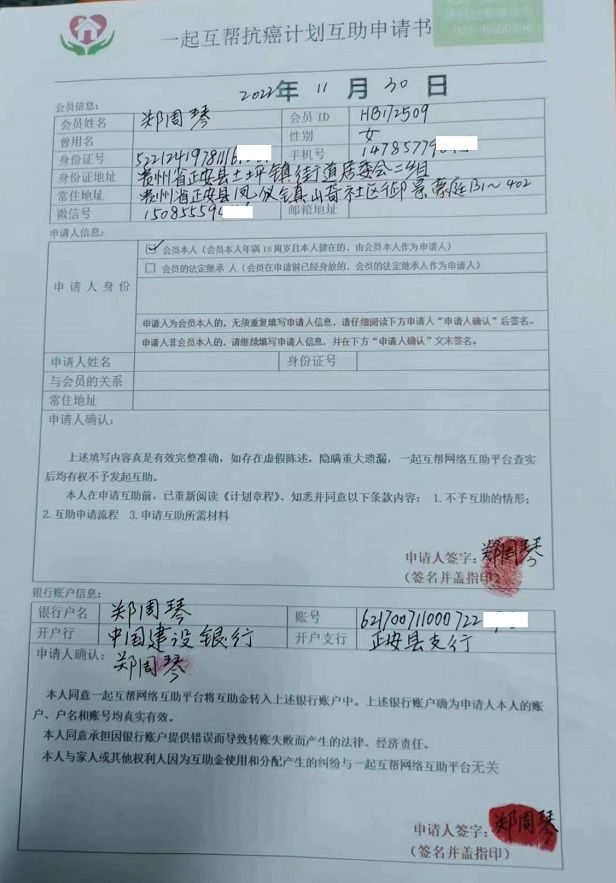 一起互帮抗癌计划互助申请书
2022年 11 月 30 日
会员信息：
会员姓名 郑周琴 会员 ID HB172509
曾用名 性别 女
身份证号 52212419781116 手机号 14785779
身份证地址 贵州省正安县土坪镇街道居委会二组
常住地址 贵州省正安县凤仪镇山奇社区御景豪庭B1～402
微信号 15085559 邮箱地址
申请人信息：
申请人身份
☑ 会员本人（会员本人年满 18 周岁且本人健在的，由会员本人作为申请人）
☐ 会员的法定继承 人（会员在申请前已经身故的，会员的法定继承人作为申请人）
申请人为会员本人的，无须重复填写申请人信息，请仔细阅读下方申请人“申请人确认”后签名。
申请人非会员本人的，请继续填写申请人信息，并在下方“申请人确认”文末签名。
申请人姓名 身份证号
与会员的关系
常住地址
申请人确认：
上述填写内容真是有效完整准确，如存在虚假陈述，隐瞒重大遗漏，一起互帮网络互助平台查实
后均有权不予发起互助。
本人在申请互助前，已重新阅读《计划章程》、知悉并同意以下条款内容： 1.不予互助的情形；
2.互助申请流程 3.申请互助所需材料
申请人签字：郑周琴
（签名并盖指印）
银行账户信息：
银行户名 郑周琴 账号 621700711000722
开户行 中国建设银行 开户支行 正安县支行
申请人确认：
郑周琴
本人同意一起互帮网络互助平台将互助金转入上述银行账户中。上述银行账户确为申请人本人的账
户、户名和账号均真实有效。
本人同意承担因银行账户提供错误而导致转账失败而产生的法律、经济责任。
本人与家人或其他权利人因为互助金使用和分配产生的纠纷与一起互帮网络互助平台无关
申请人签字：郑周琴
（签名并盖指印）